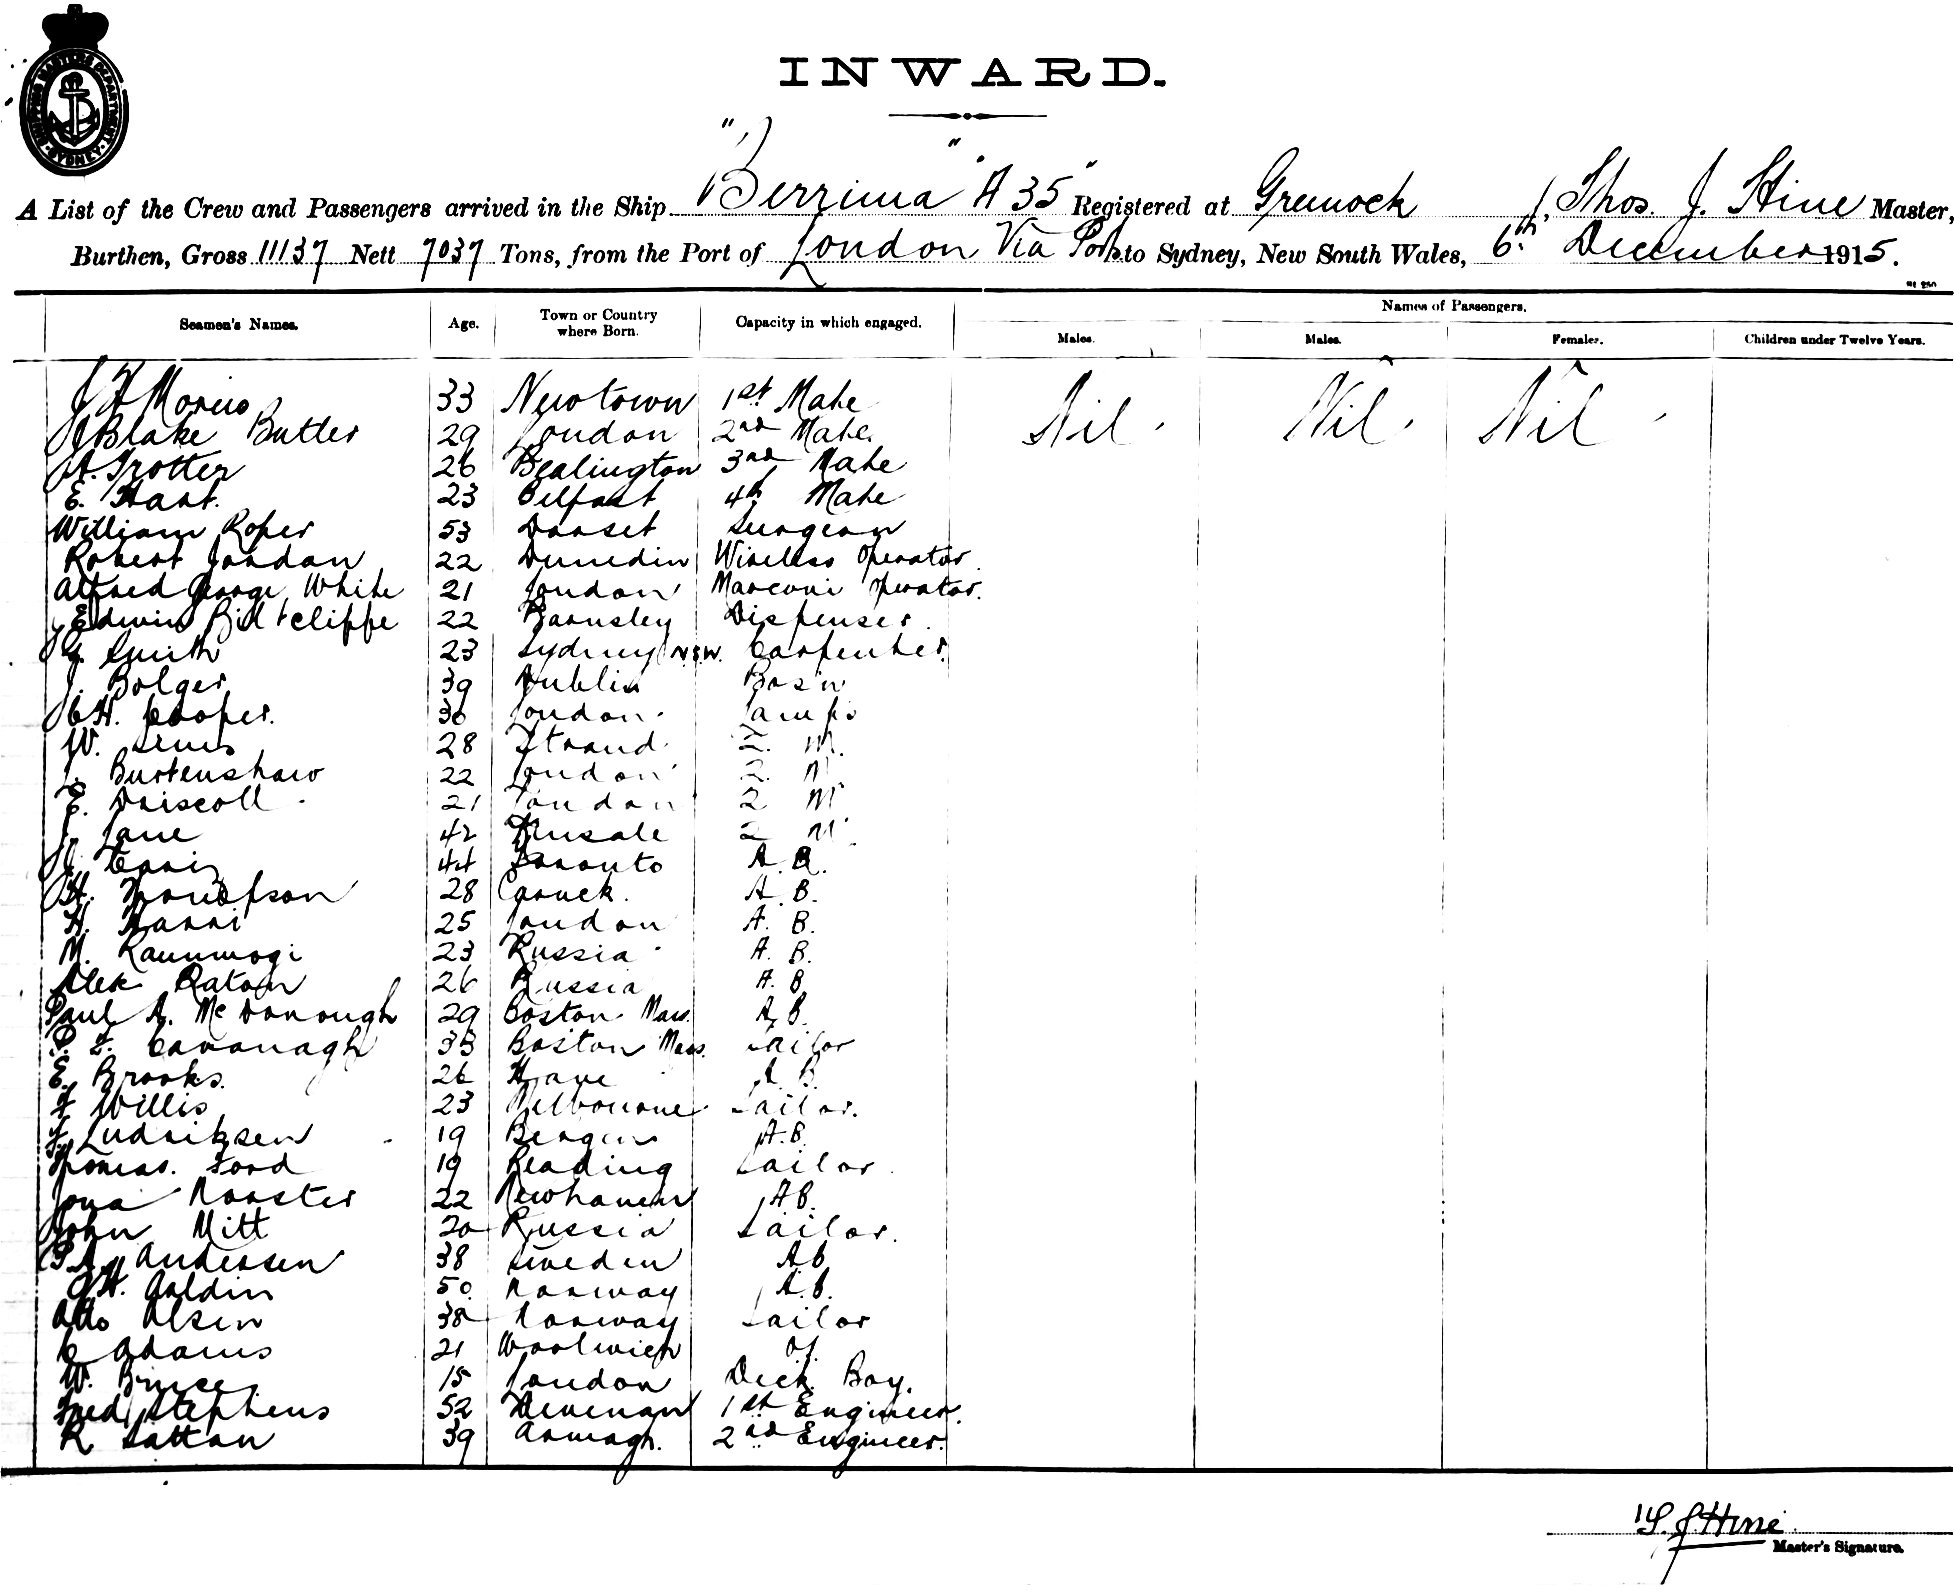 SHIPPING MASTERS DEPARTMENT SYDNEY
INWARD.
A List of the Crew and Passengers arrived in the Ship "Berrima" "A 35" Registered at Greenock Thos. J. Hine Master,
Burthen, Gross 11137 Nett 7037 Tons, from the Port of London Via Ports to Sydney, New South Wales, 6th December 1915.
Seamen's Names. Age. Town or Country where Born. Capacity in which engaged. Names of Passengers.
Males. Males. Females. Children under Twelve Years.
33 Newtown 1st Mate Nil. Nil. Nil
Blake Butler 29 London 2nd Mate
A. Trotter 26 3rd Mate
E. Hart. 23 Belfast 4th Mate
William Roper 53 Dorset Surgeon
Robert Jordan 22 Dunedin Wireless Operator
Alfred George White 21 London Marconi Operator.
Edwin 22 Barnsley Dispenser.
G. Smith 23 Sydney N.S.W. Carpenter.
J. Bolger 39 Dublin Bos'n
C H. Cooper. 30 London. Lamps
W. 28 Strand. 2. M.
Burtenshaw 22 London 2. M
E. Driscoll 21 London 2 M
J. Lane 42 Kinsale 2 M
J. 44 Toronto A. B.
H. 28 A. B.
H. Harri 25 London A. B.
M. 23 Russia A. B.
Alek 26 Russia A. B.
Paul A. McDonough 29 Boston Mass. A. B.
P. F. Cavanagh 33 Boston Mass. Sailor
E. Brooks. 26 A. B.
F Willis 23 Melbourne Sailor.
F. Ludriksen 19 Bergen A.B.
Thomas. Ford 19 Reading Sailor.
22 Newhaven A B.
John 20 Russia Sailor.
Andersen 38 Sweden A B
H. 50. Norway A.B.
Otto Olsen 38 Norway Sailor
C Adams 21 Woolwich
W. Bruce 15 London Deck Boy.
Fred Stephens 52 1st Engineer.
R 39 Armagh. 2nd Engineer.
T. J Hine
Master's Signature.